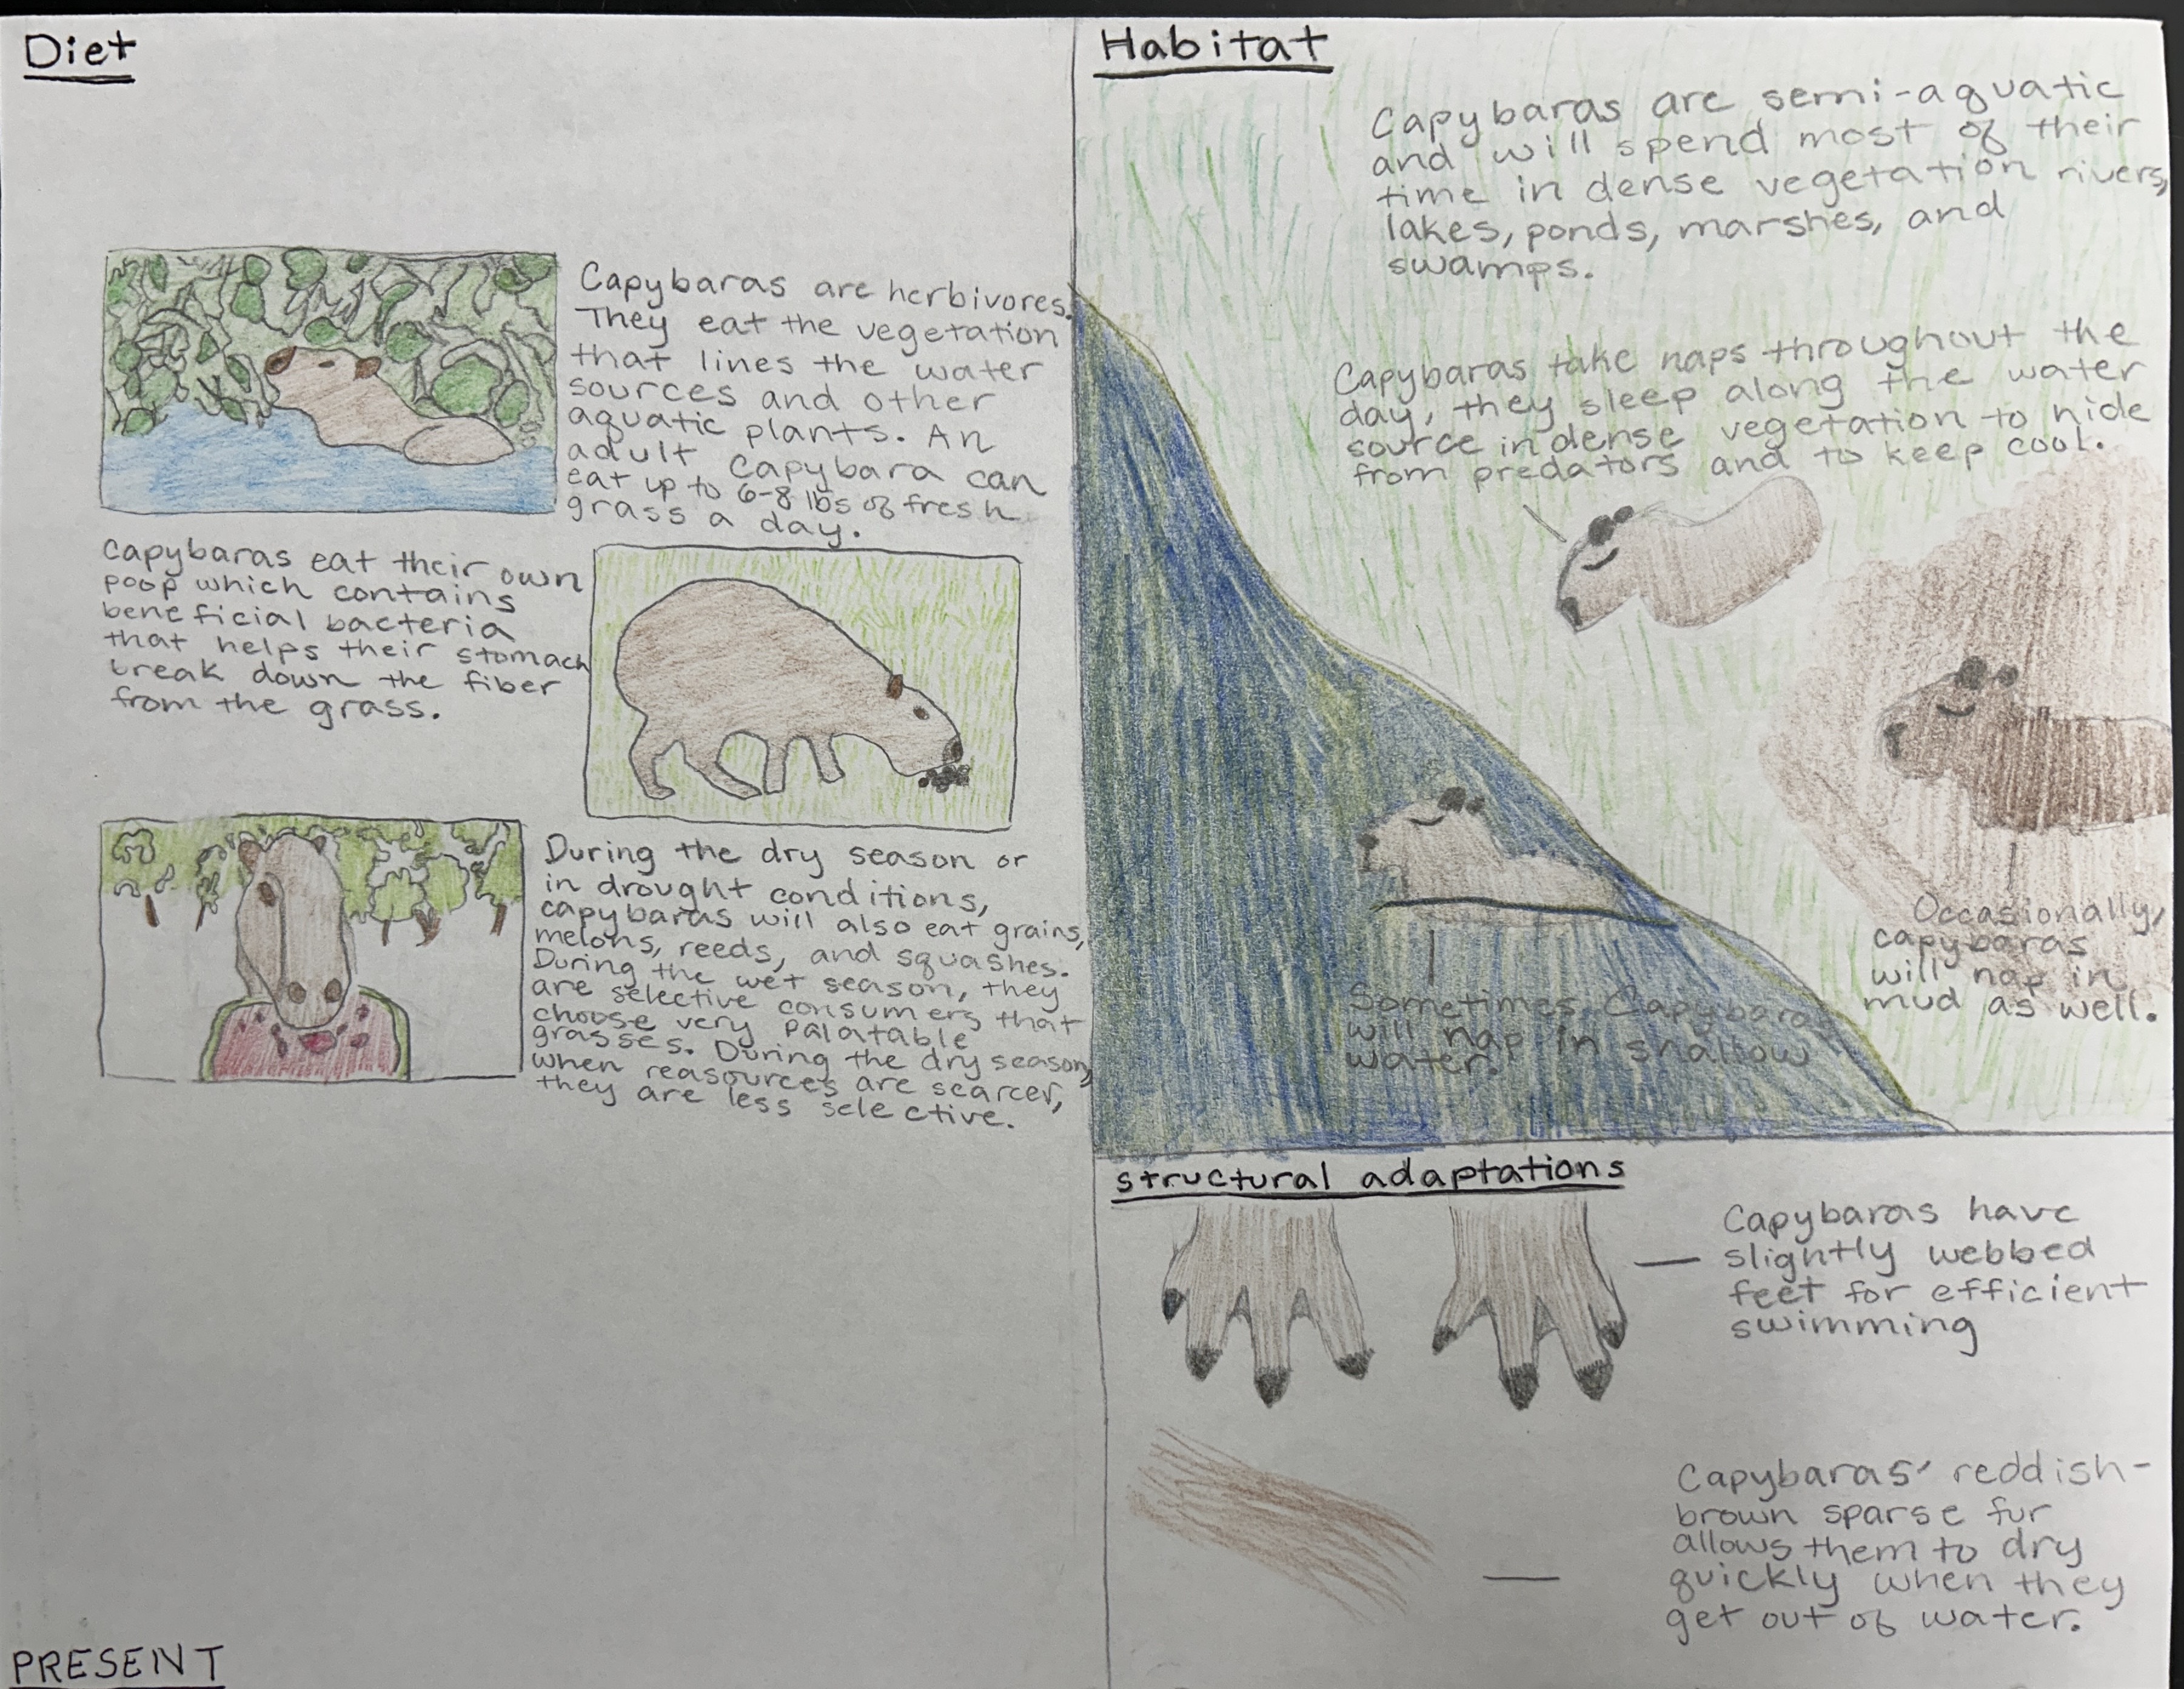 Diet
Capybaras are herbivores.
They eat the vegetation
that lines the water
sources and other
aquatic plants. An
adult capybara can
eat up to 6-8 lbs of fresh
grass a day.
Capybaras eat their own
poop which contains
beneficial bacteria
that helps their stomach
break down the fiber
from the grass.
During the dry season or
in drought conditions,
capybaras will also eat grains,
melons, reeds, and squashes.
During the wet season, they
are selective consumers that
choose very palatable
grasses. During the dry season,
when reasources are scarcer,
they are less selective.
PRESENT
Habitat
Capybaras are semi-aquatic
and will spend most of their
time in dense vegetation rivers,
lakes, ponds, marshes, and
swamps.
Capybaras take naps throughout the
day, they sleep along the water
source in dense vegetation to hide
from predators and to keep cool.
Occasionally,
capybaras
will nap in
mud as well.
Sometimes, Capybaras
will nap in shallow
water.
structural adaptations
Capybaras have
slightly webbed
feet for efficient
swimming
Capybaras' reddish-
brown sparse fur
allows them to dry
quickly when they
get out of water.